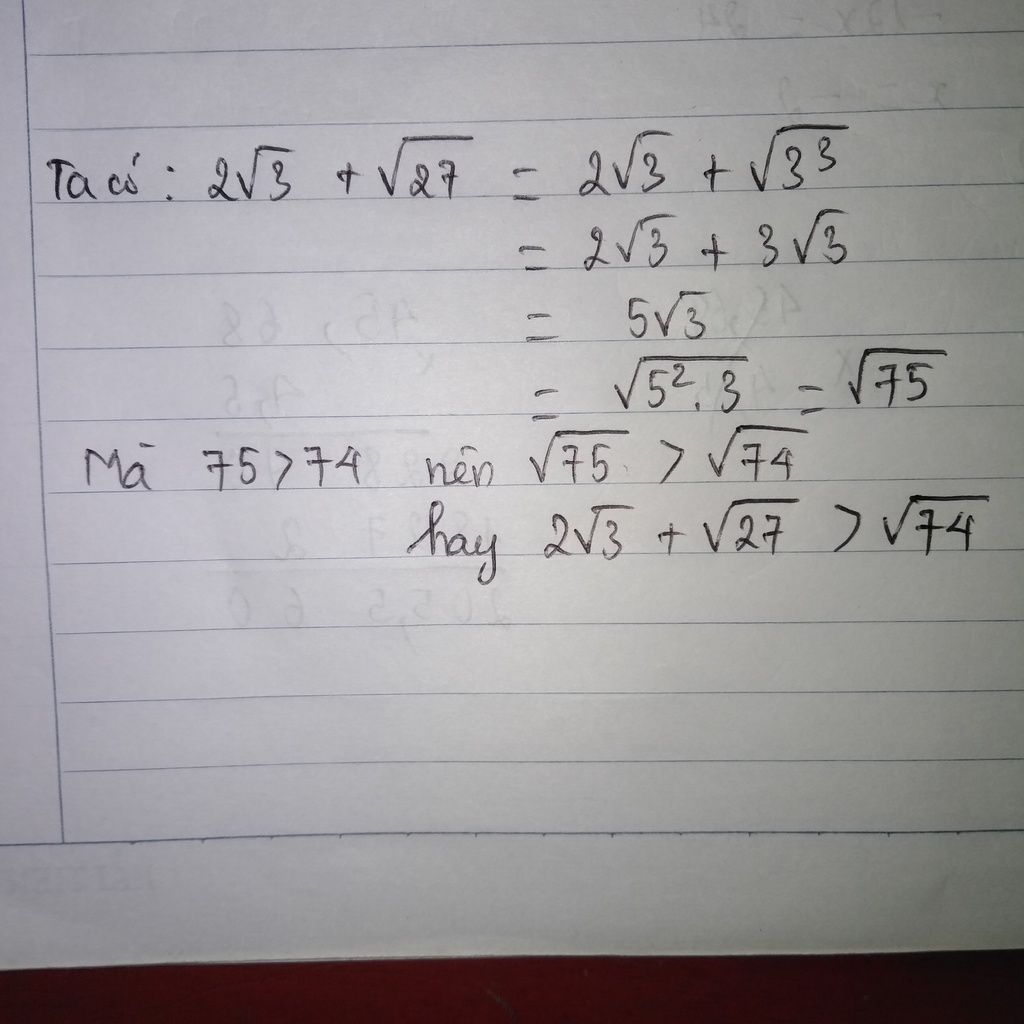 Ta có: 2√3 + √27 = 2√3 + √3³
= 2√3 + 3√3
= 5√3
= √5².3 = √75
Mà 75>74 nên √75 > √74
hay 2√3 + √27 > √74